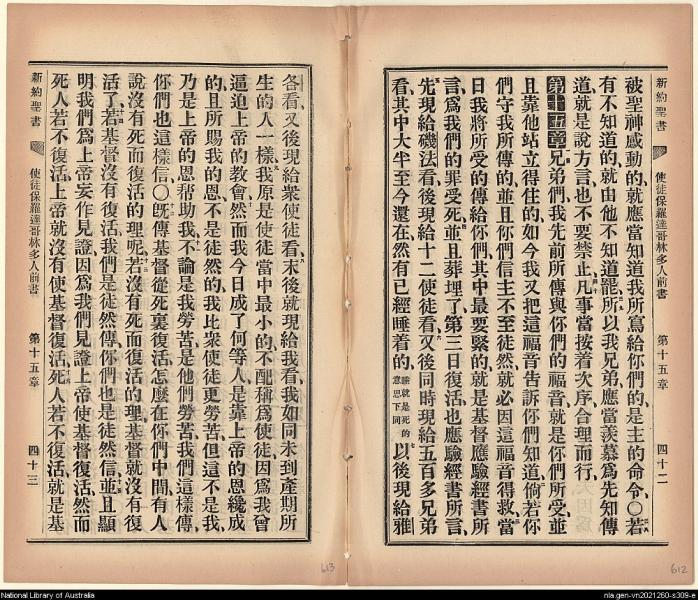 新約聖書
使徒保羅達哥林多人前書
第十五章
四十二
被聖神感動的、就應當知道我所寫給你們的、是主的命令、〇若
有不知道的、就由他不知道罷、所以我弟兄應當羨慕爲先知傳
道、就是說方言、也不要禁止、凡事當按着次序合理而行、
第十五章 兄弟們、我先前所傳與你們的福音、就是你們所受、並
且靠他站立得住的、如今我又把這福音告訴你們知道、倘若你
們守我所傳的、並且你們信主不至徒然、就必因這福音得救、當
日我將所受的傳給你們、其中最要緊的、就是基督應驗經書所
言、爲我們的罪受死、並且葬埋了、第三日復活、也應驗經書所言、
先現給磯法看、後現給十二使徒看、又後同時現給五百多兄弟
看、其中大半至今還在、然有已經睡着的、睡就是死的意思下同以後現給雅
新約聖書
使徒保羅達哥林多人前書
第十五章
四十三
各看、又後現給衆使徒看、末後就現給我看、我如同未到產期所
生的人一樣、我原是使徒當中最小的、不配稱爲使徒、因爲我曾
逼迫上帝的敎會、然而我今日成了何等人、是靠上帝的恩纔成
的、且所賜我的恩不是徒然的、我比衆使徒更勞苦、但這不是我、
乃是上帝的恩帮助我、不論是我勞苦、是他們勞苦、我們這樣傳、
你們也這樣信、〇旣傳基督從死裏復活、怎麽在你們中間有人
說沒有死而復活的理呢、若沒有死而復活的理、基督就沒有復
活了、若基督沒有復活、我們是徒然傳、你們也是徒然信、並且顯
明我們爲上帝妄作見證、因爲我們見證上帝使基督復活、然而
死人若不復活、上帝就沒有使基督復活、死人若不復活、就是基
613
612
National Library of Australia
nla.gen-vn2021260-s309-e